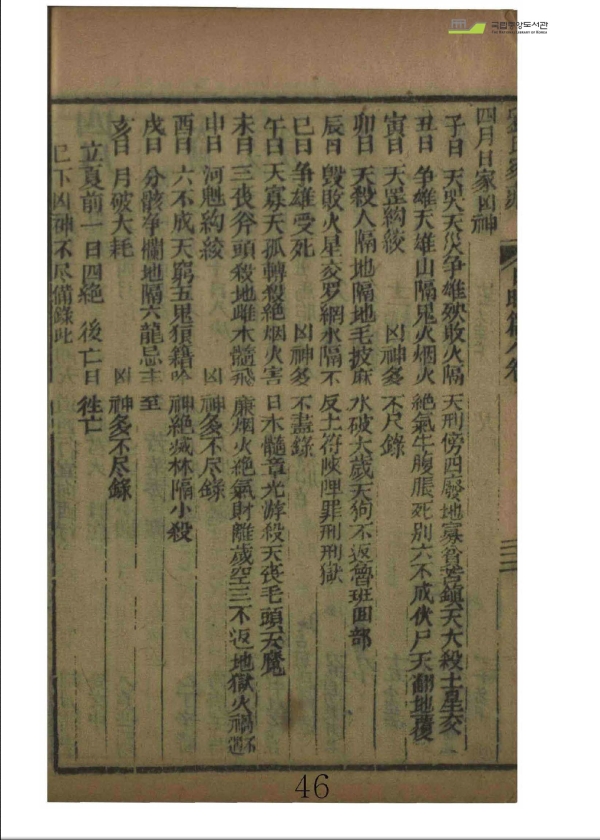 국립중앙도서관
THE NATIONAL LIBRARY OF KOREA
四月日家凶神
子日 天咒天災争雄殃敗火隔 天刑傍四廢地寡貧苦鎮天大殺土星交
丑日 争雄天雄山隔鬼火烟火 絶氣牛腹脹死别六不成伏尸天翻地覆
寅日 天罡絞 凶神多 不尽錄
卯日 天殺人隔地隔地毛披麻 水破大歲天狗不返魯班回部
辰日 毁敗火星交罗網水隔不 反土符陜陴罪刑刑獄
巳日 争雄受死 凶神多 不盡錄
午日 天寡天孤轉殺絶烟火害 日木髓章光游殺天丧毛頭天魔
未日 三丧斧頭殺地雌木髓飛 廉烟火絶氣財離歲空三不返地獄火禍
申日 河魁絞 凶 神多不尽錄
酉日 六不成天窮五鬼狼籍 神絶滅林隔小殺
戌日 分骸争欄地隔六龍忌 至
亥日 月破大耗 凶 神多不尽錄
立夏前一日四絶 後亡日 徃亡
已下凶神不尽備錄此
46